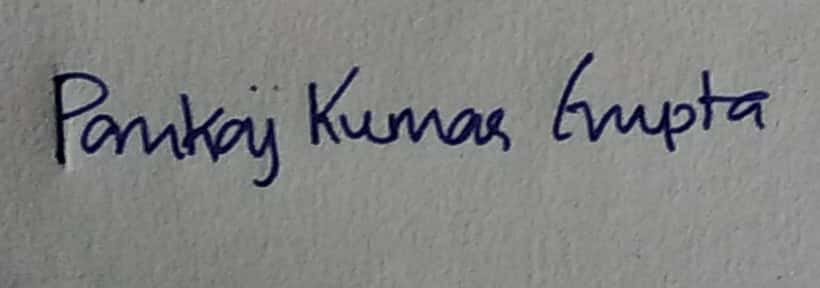 Pankaj Kumar Gupta